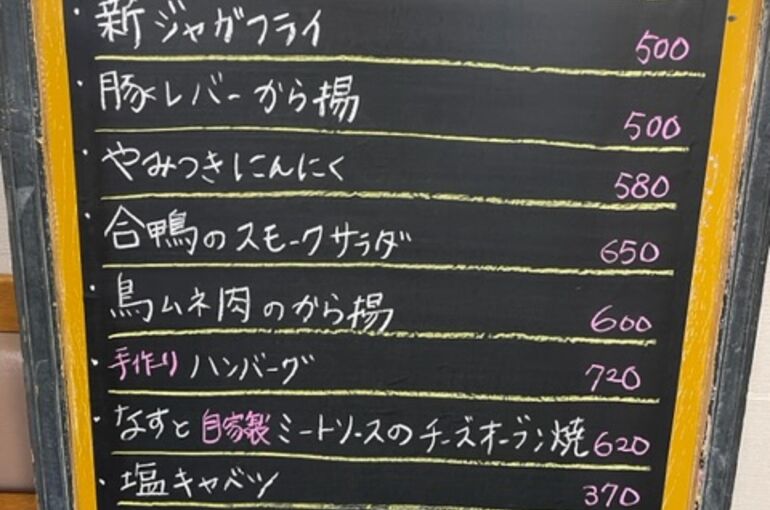 ・新ジャガフライ 500
・豚レバーから揚 500
・やみつきにんにく 580
・合鴨のスモークサラダ 650
・鳥ムネ肉のから揚 600
・手作りハンバーグ 720
・なすと自家製ミートソースのチーズオーブン焼 620
・塩キャベツ 370